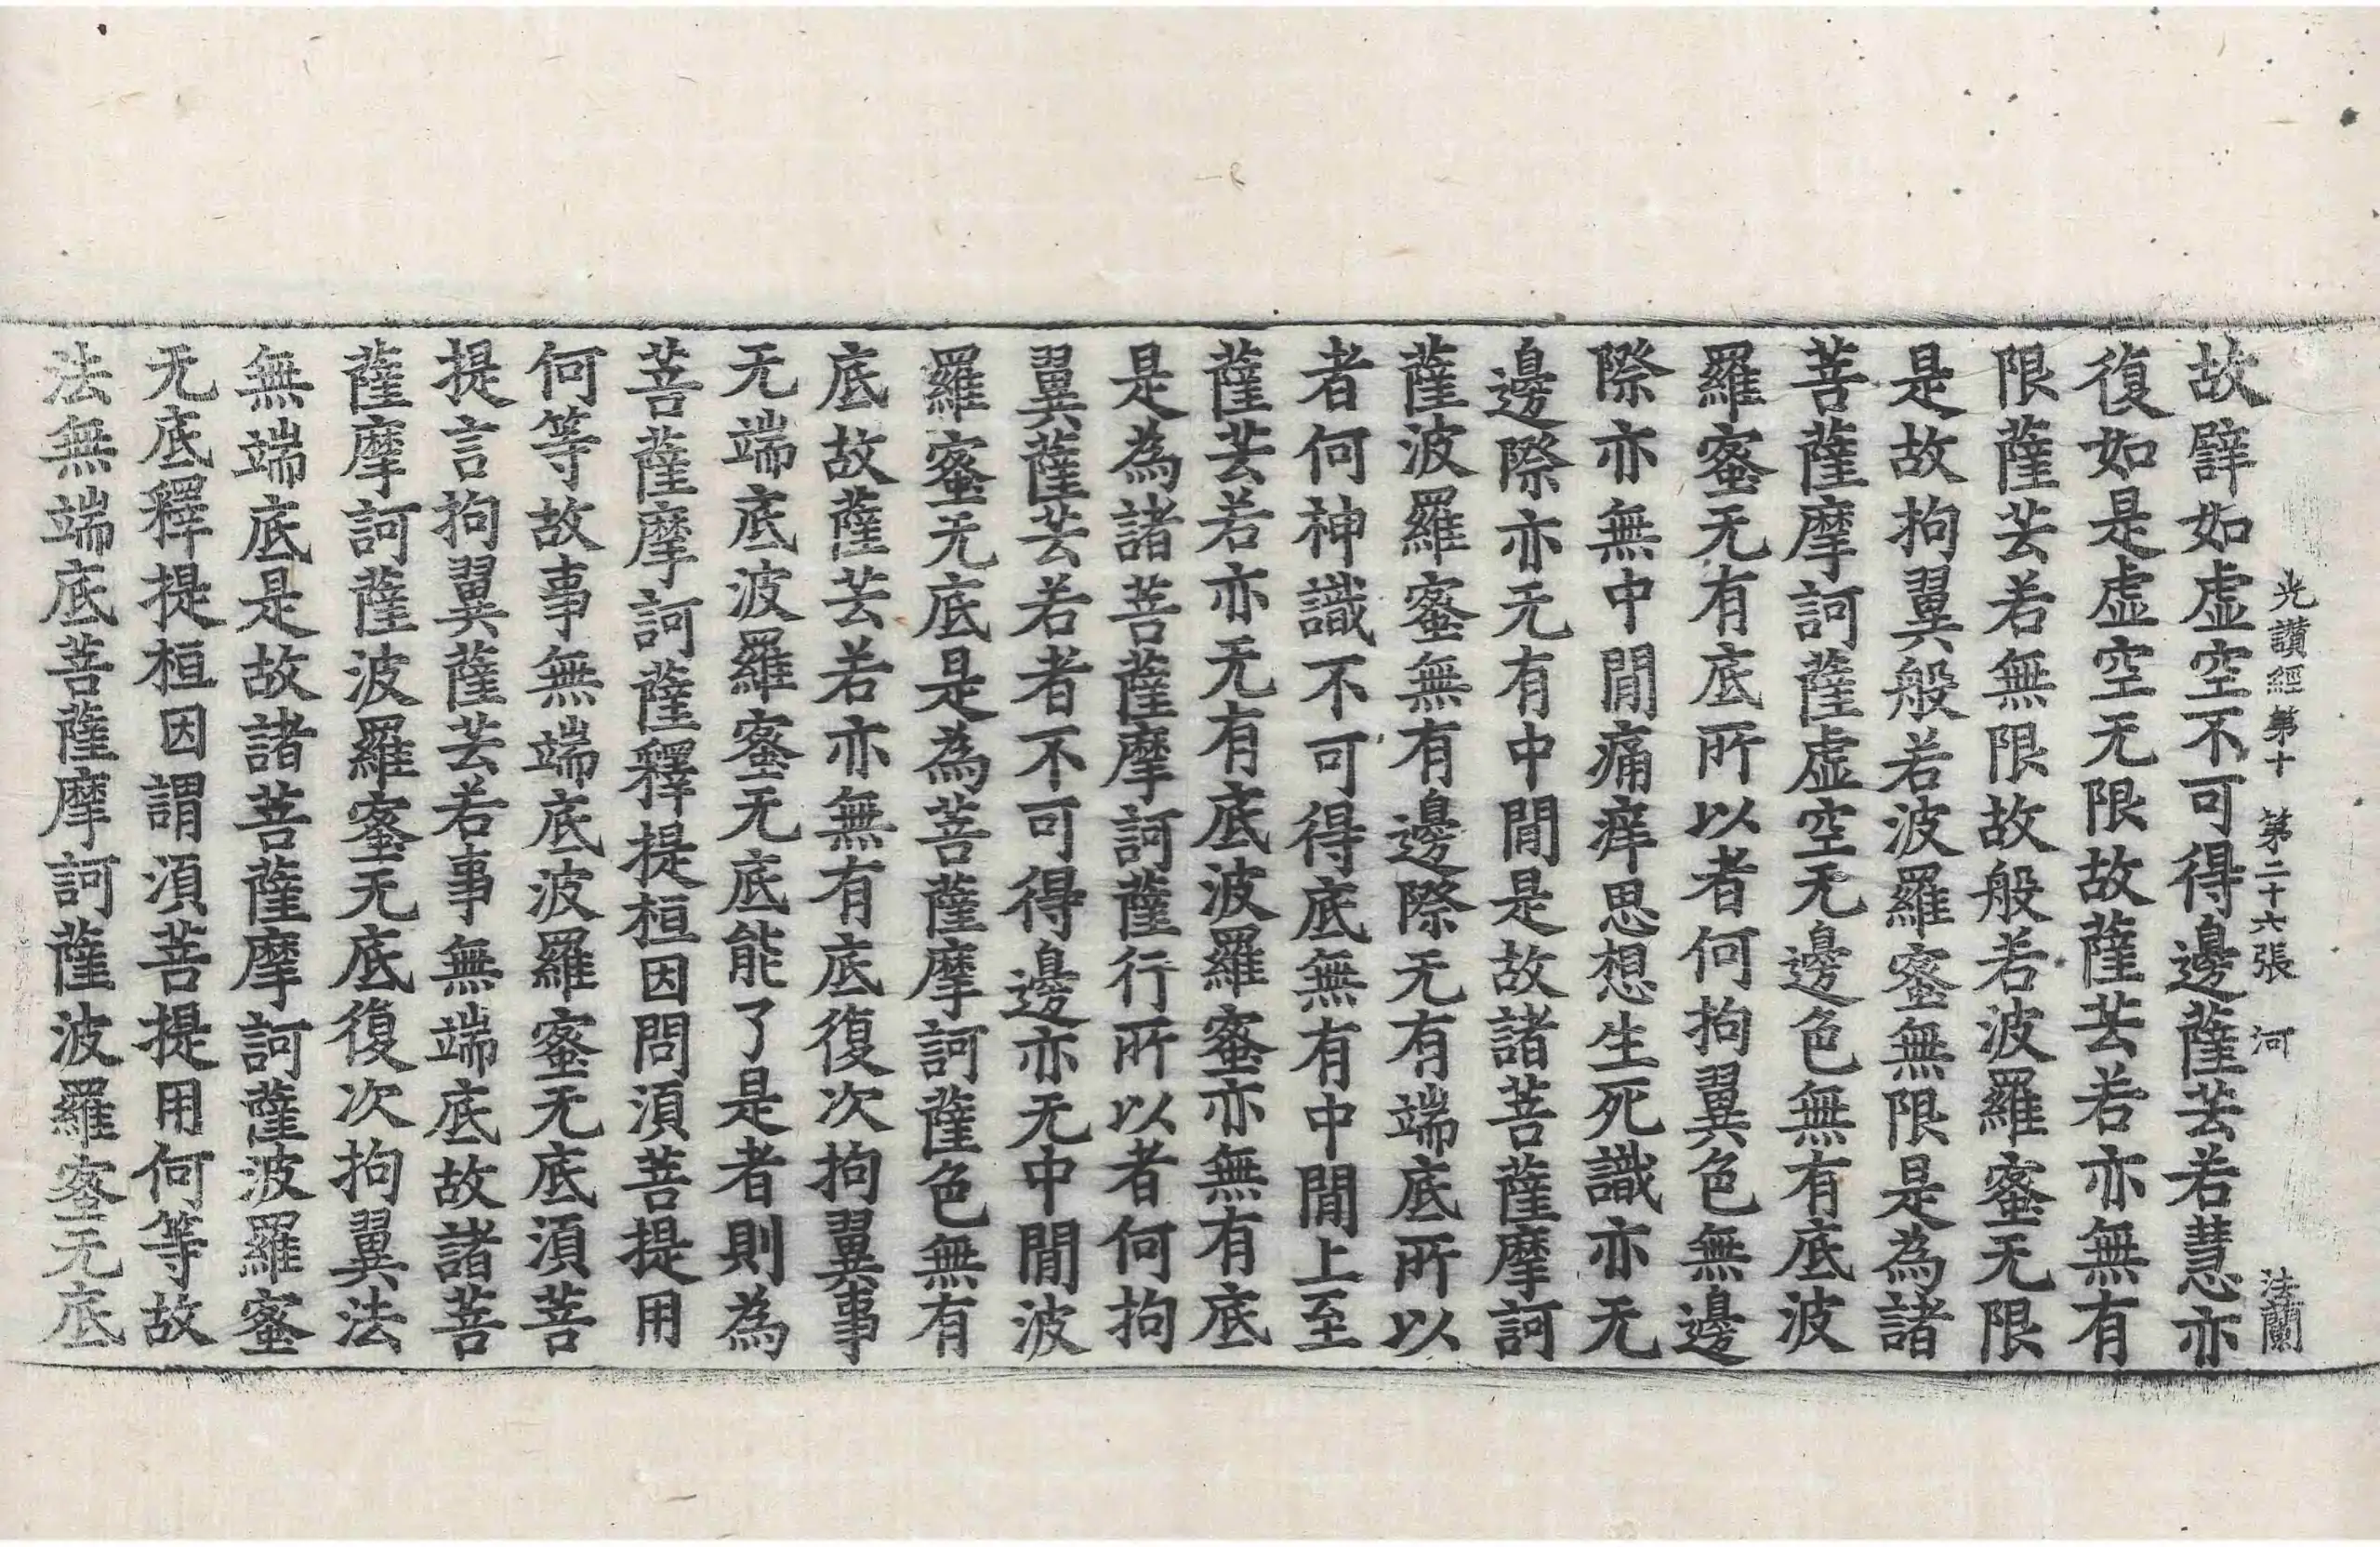 光讃經第十　第二十六張　河　法蘭
故譬如虛空不可得邊薩芸若慧亦
復如是虛空无限故薩芸若亦無有
限薩芸若無限故般若波羅蜜无限
是故拘翼般若波羅蜜無限是為諸
菩薩摩訶薩虛空无邊色無有底波
羅蜜无有底所以者何拘翼色無邊
際亦無中閒痛痒思想生死識亦无
邊際亦无有中閒是故諸菩薩摩訶
薩波羅蜜無有邊際无有端底所以
者何神識不可得底無有中閒上至
薩芸若亦无有底波羅蜜亦無有底
是為諸菩薩摩訶薩行所以者何拘
翼薩芸若者不可得邊亦无中閒波
羅蜜无底是為菩薩摩訶薩色無有
底故薩芸若亦無有底復次拘翼事
无端底波羅蜜无底能了是者則為
菩薩摩訶薩釋提桓因問須菩提用
何等故事無端底波羅蜜无底須菩
提言拘翼薩芸若事無端底故諸菩
薩摩訶薩波羅蜜无底復次拘翼法
無端底是故諸菩薩摩訶薩波羅蜜
无底釋提桓因謂須菩提用何等故
法無端底菩薩摩訶薩波羅蜜无底